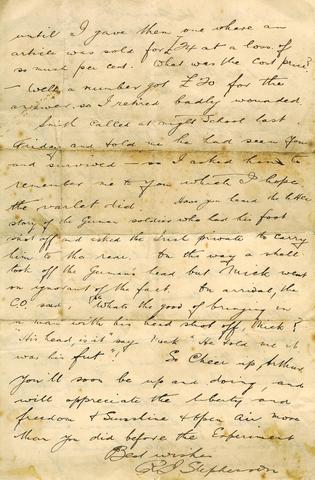 until I gave them one where an
article was sold for £24 at a loss of
so much per cent. What was the Cost price?
– Well a number got £20 for the
answer, so I retired badly wounded.
Smith called at night School last
Friday and told me he had seen You
and survived – so I asked him to
remember me to You which I hope
the varlet did. Have you heard the latest
story of the German soldier who had his foot
shot off and asked the Irish private to carry
him to the rear. On the way a shell
took off the German's head but Mick went
on ignorant of the fact. On arrival, the
C.O. said, "Whats the good of bringing in
a man with his head shot off, Mick?"
"His head, is it" say Mick "He told me it
was his foot". So Cheer up, Arthur
You'll soon be up and doing, and
will appreciate the liberty and
freedom & Sunshine & Open Air more
than You did before the Experiment
Best wishes
R J Stephenson